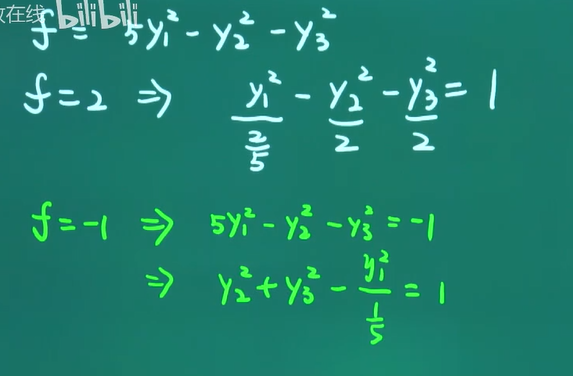 在线 bilibili
f = 5y₁² - y₂² - y₃²
f = 2 ⇒ y₁²/(2/5) - y₂²/2 - y₃²/2 = 1
f = -1 ⇒ 5y₁² - y₂² - y₃² = -1
⇒ y₂² + y₃² - y₁²/(1/5) = 1